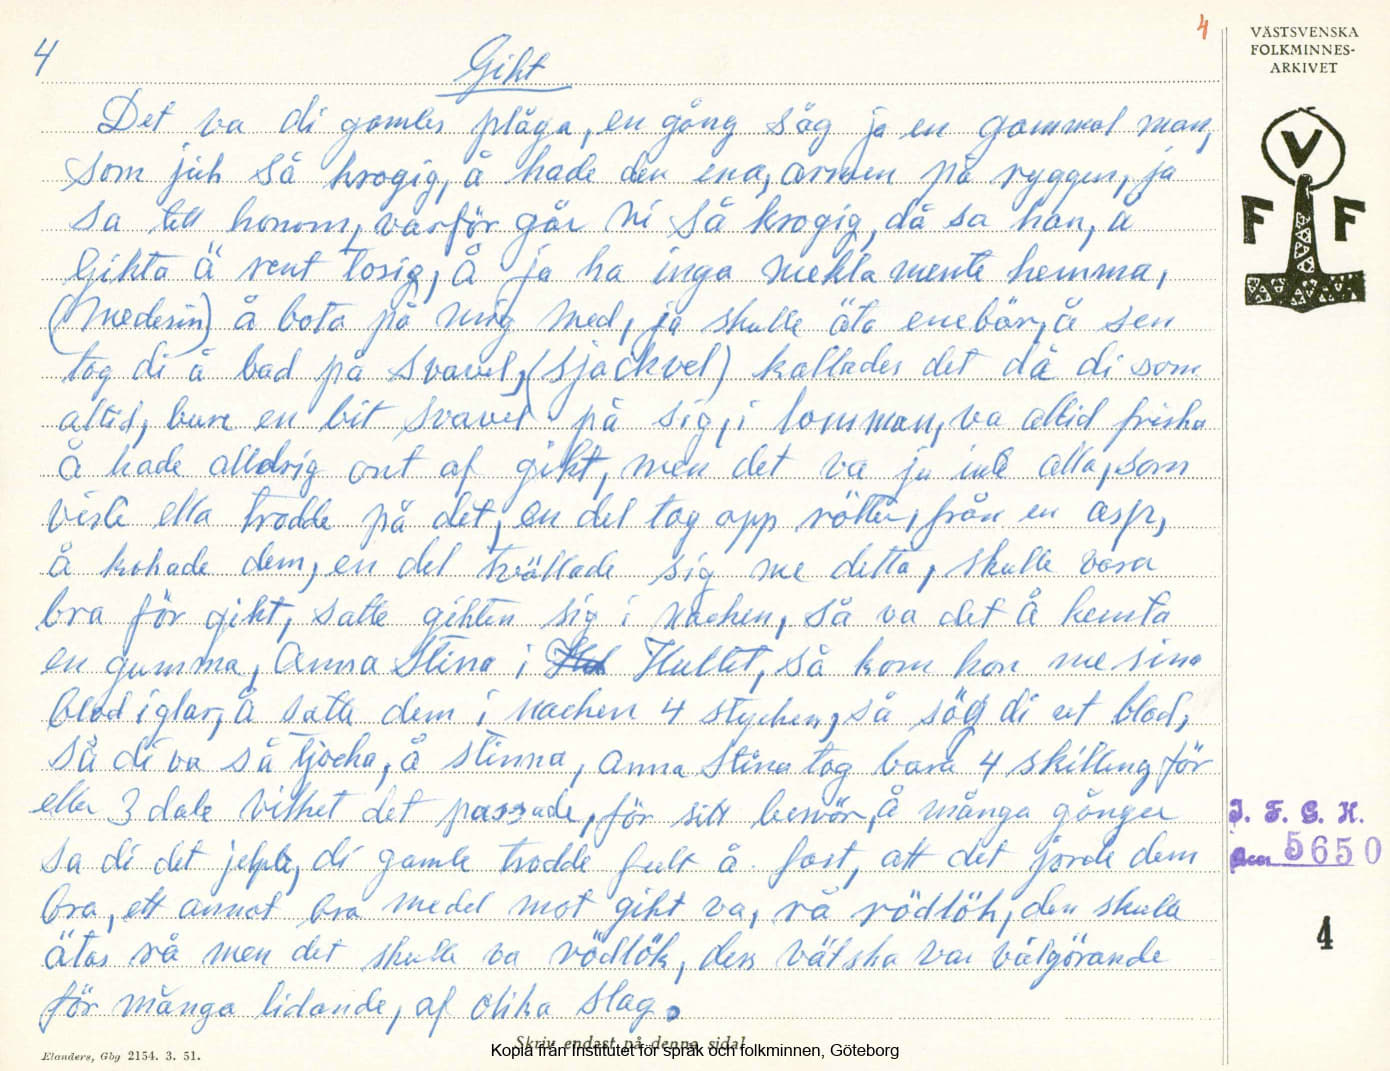 4
4
Gikt
Det va di gamles plåga, en gång såg ja en gammal man,
som jick så krogig, å hade den ena, armen på ryggen, ja
sa till honom, varför går Ni så krogig, då sa han, å
Gikta ä rent tosig, å ja ha inga mekla mente hemma,
(Medesin) å bota på mig med, ja skulle äta enebär, å sen
tog di å bad på svavel, (sjackvel) kallades det då di som
altid, bure en bit svavel på sig, i lomman, va altid friska
å hade alldrig ont af gikt, men det va ju inte alla, som
viste ella trodde på det, en del tog opp rötter, från en asp,
å kokade dem, en del tvällade sig me detta, skulle vara
bra för gikt, satte gikten sig i nacken, så va det å hemta
en gumma, Anna Stina i Hultet, så kom hon me sina
blod iglar, å satte dem i nacken 4 stycken, så sög di ut blod,
så di va så tjocka, å stinna, Anna Stina tog bara 4 skilling för
ella 3 dale vilket det passade, för sitt besvär, å många gånger
sa di det jelpte, di gamle trodde fult å fast, att det jorde dem
bra, ett annat bra medel mot gikt va, rå rödlök, den skulle
ätas rå men det skulle va rödlök, dess vätska var välgörande
för många lidande, af olika slag.
Skriv endast på denna sida!
Elanders, Gbg 2154. 3. 51.
Kopia från Institutet för språk och folkminnen, Göteborg
VÄSTSVENSKA
FOLKMINNES-
ARKIVET
V
F F
I. F. G. H.
5650
4